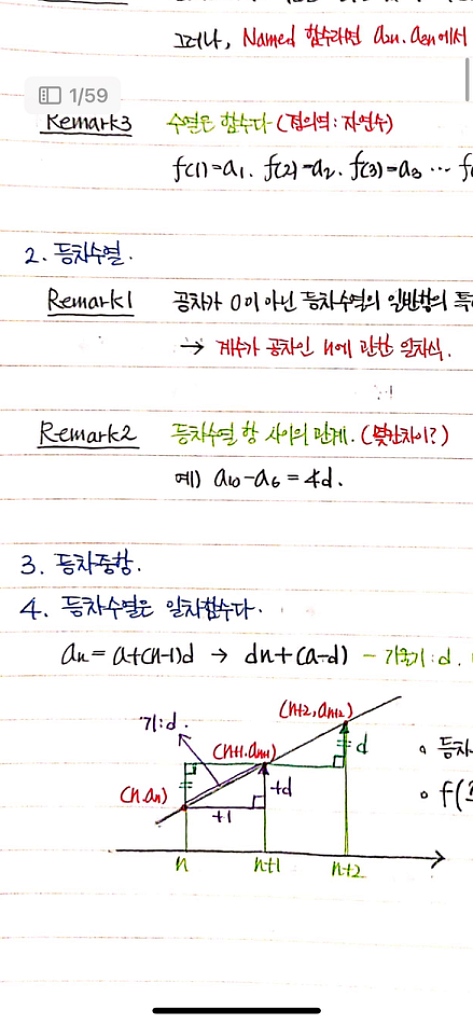 그러나, Named 함수라면 a2n. a2n에서
1/59
Remark3 수열은 함수다 (정의역: 자연수)
f(1)=a1. f(2)=a2. f(3)=a3 ⋯ f
2. 등차수열.
Remark1 공차가 0이 아닌 등차수열의 일반항의 특
→ 계수가 공차인 n에 관한 일차식.
Remark2 등차수열 항 사이의 관계. (몇칸차이?)
예) a10-a6=4d.
3. 등차중항.
4. 등차수열은 일차함수다.
an=a+(n-1)d → dn+(a-d) - 기울기:d.
(n+2,an+2)
기:d.
(n+1.an+1)
d
◦ 등차
(n.an)
+d
◦ f(
+1
n n+1 n+2